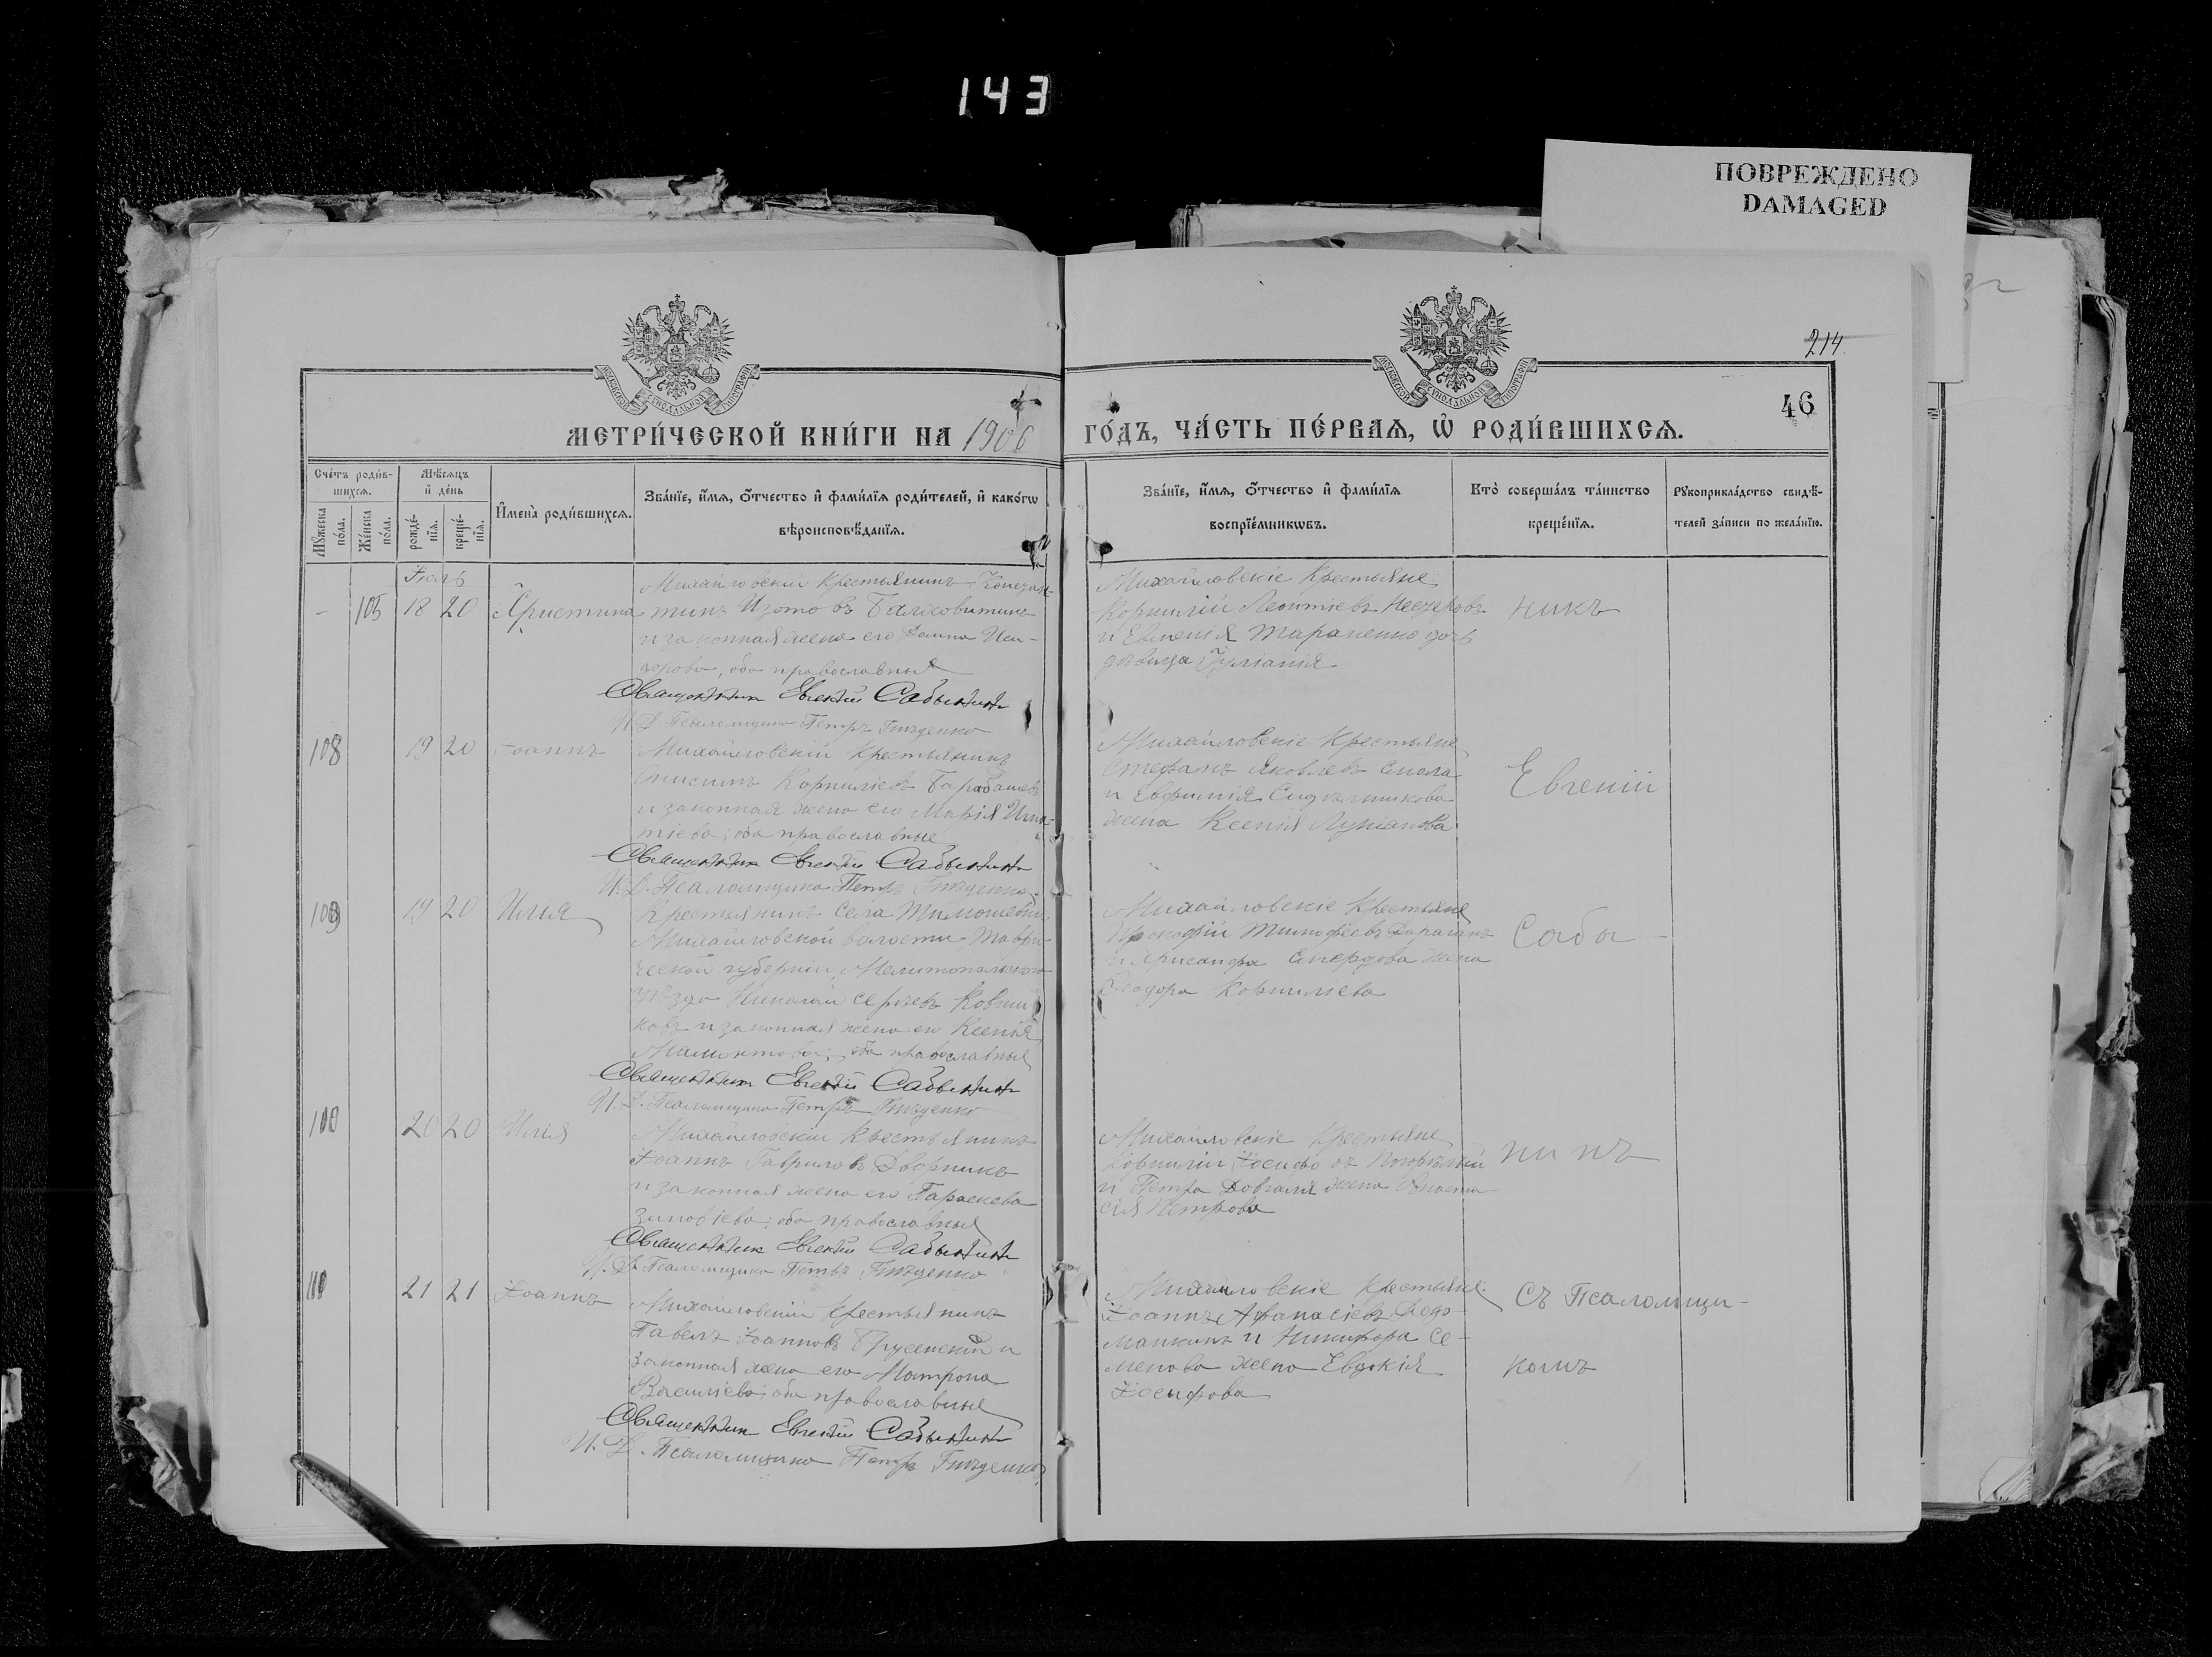 143
ПОВРЕЖДЕНО
DAMAGED
214
46
МОСКОВСКОЙ СѴНОДАЛЬНОЙ ТИПОГРАФІИ
МОСКОВСКОЙ СѴНОДАЛЬНОЙ ТИПОГРАФІИ
МЕТРИ́ЧЕСКОЙ КНИ́ГИ НА 1906 ГО́ДЪ, ЧА́СТЬ ПЕ́РВАѦ, Ѡ҆ РОДИ́ВШИХСѦ.
Сче́тъ роди́в-
шихсѧ.
Мꙋ́жеска по́ла.
Же́нска по́ла.
Мѣ́сѧцъ и҆ де́нь
рожде́-нїѧ.
креще́-нїѧ.
И҆мена̀ роди́вшихсѧ.
Зва́нїе, и҆́мѧ, ѻ҆́тчество и҆ фами́лїѧ роди́телей, и҆ како́гѡ
вѣроисповѣ́данїѧ.
Зва́нїе, и҆́мѧ, ѻ҆́тчество и҆ фами́лїѧ
воспрїе́мникѡвъ.
Кто̀ соверша́лъ та́инство
креще́нїѧ.
Рꙋкоприкла́дство свидѣ́-
телей за́писи по жела́нїю.
Іюль
- 105 18 20 Христина
Михайловскій крестьянинъ Констан-
тинъ Изотовъ
и законная жена его Домна Иси-
дорова, оба православные
Священникъ Евгеній Сабынинъ
И. Д. Псаломщика Петръ Гнѣденко
Михайловскіе крестьяне
Корнилій Леонтіевъ
и Евгенія Тараненко дочь
дѣвица Іуліанія
никъ
108 19 20 Іоаннъ
Михайловскій крестьянинъ
Онисимъ Корниліевъ Барабашевъ
и законная жена его Марія Игна-
тіева; оба православные
Священникъ Евгеній Сабынинъ
И. Д. Псаломщика Петръ Гнѣденко
Михайловскіе крестьяне
Стефанъ Яковлевъ Смола
и Евфимія Сидѣльникова
жена Ксенія Лукіанова
Евгеній
109 19 20 Илія
Крестьянинъ села Тимошевки
Михайловской волости Таври-
ческой губерніи, Мелитопольского
уѣзда Николай Сергѣевъ
и законная жена его Ксенія
оба православные
Священникъ Евгеній Сабынинъ
И. Д. Псаломщика Петръ Гнѣденко
Михайловскіе крестьяне
Прокофій Тимофѣевъ Дараганъ
жена
Ѳеодора Корниліева
Сабы-
20 20 Илія
Михайловскій крестьянинъ
Іоаннъ Гавриловъ Дворникъ
и законная жена его Параскева
Зиновіева; оба православные
Священникъ Евгеній Сабынинъ
И. Д. Псаломщика Петръ Гнѣденко
Михайловскіе крестьяне
Корнилій Іосифовъ Погорѣлый
и Петра Довгаля жена Анаста-
сія Петрова
нинъ
21 21 Іоаннъ
Михайловскій крестьянинъ
Павелъ Іоанновъ и
законная жена его Матрона
Василіева; оба православные
Священникъ Евгеній Сабынинъ
И. Д. Псаломщика Петръ Гнѣденко
Михайловскіе крестьяне
Іоаннъ Афанасіевъ
и Никифора Се-
менова жена Евдокія
Іосифова
съ Псаломщи-
комъ